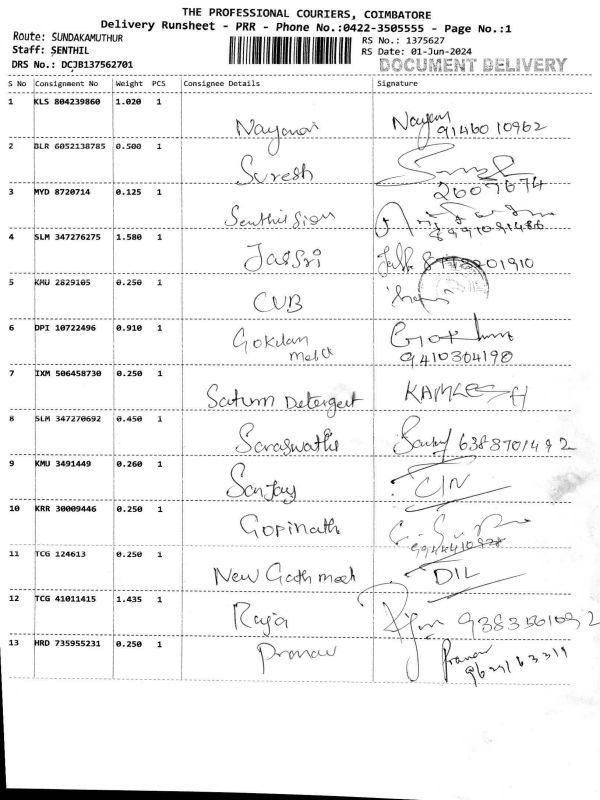 THE PROFESSIONAL COURIERS, COIMBATORE
Delivery Runsheet - PRR - Phone No.:0422-3505555 - Page No.:1
Route: SUNDAKAMUTHUR
RS No.: 1375627
Staff: SENTHIL
RS Date: 01-Jun-2024
DRS No.: DCJB137562701
DOCUMENT DELIVERY
S No Consignment No Weight PCS Consignee Details Signature
1 KLS 804239860 1.020 1
Nayanar Nayan
9146010962
2 BLR 6052138785 0.500 1
Suresh
2607674
3 MYD 8720714 0.125 1
4 SLM 347276275 1.580 1
Jassri
5 KMU 2829105 0.250 1
CUB
6 DPI 10722496 0.910 1
Gokulan
9410304190
7 IXM 506458730 0.250 1
Saturn Detergent KAMLESH
8 SLM 347270692 0.450 1
Saraswathi 6388701492
9 KMU 3491449 0.260 1
Sanjay
10 KRR 30009446 0.250 1
Gopinath
11 TCG 124613 0.250 1
New DIL
12 TCG 41011415 1.435 1
Raja
13 HRD 735955231 0.250 1
Pranav Pranav